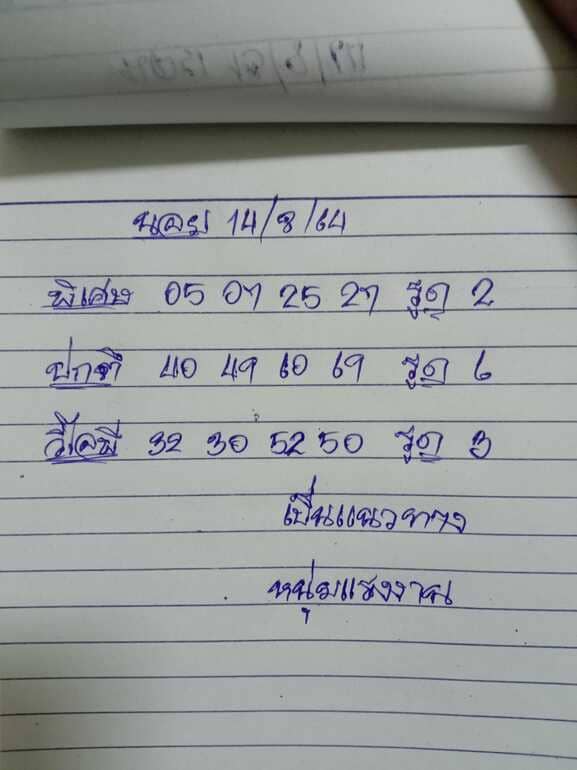 นอย 14/8/64
พิเศษ 05 07 25 27 รูด 2
ปกติ 40 49 60 69 รูด 6
วีไอพี 32 30 52 50 รูด 3
เป็นแนวทาง
หนุ่มแซงงาน